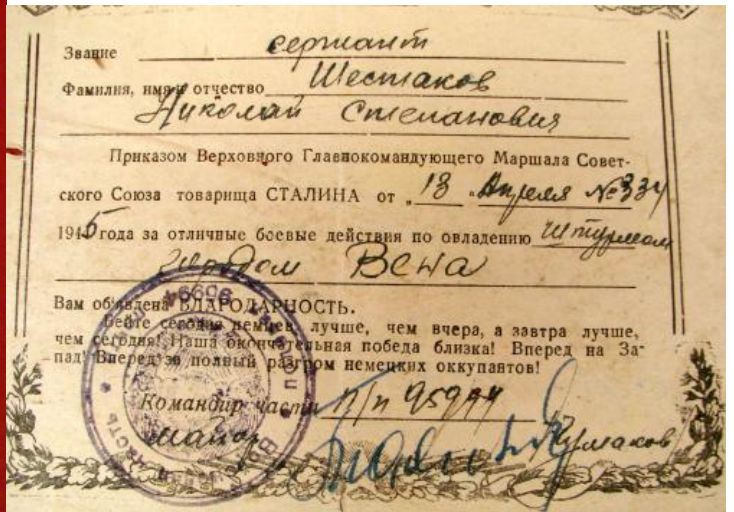 Звание сержант
Фамилия, имя и отчество Шестаков
Николай Степанович
Приказом Верховного Главнокомандующего Маршала Совет-
ского Союза товарища СТАЛИНА от „13 “ Апреля №334
1945 года за отличные боевые действия по овладению штурмом
городом Вена
Вам объявлена БЛАГОДАРНОСТЬ.
Бейте сегодня немцев лучше, чем вчера, а завтра лучше,
чем сегодня! Наша окончательная победа близка! Вперед на За-
пад! Вперед за полный разгром немецких оккупантов!
Командир части п/п
майор